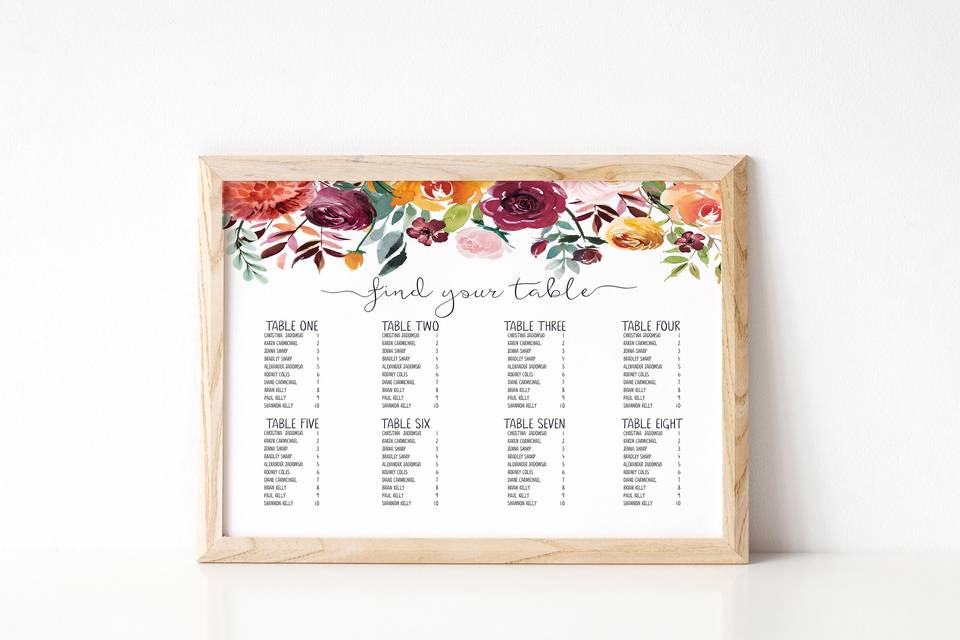 find your table
TABLE ONE
CHRISTINA JADOMSKI 1
KAREN CARMICHAEL 2
JENNA SHARP 3
BRADLEY SHARP 4
ALEXANDER JADOMSKI 5
RODNEY COLES 6
DIANE CARMICHAEL 7
BRIAN KELLY 8
PAUL KELLY 9
SHANNON KELLY 10
TABLE TWO
CHRISTINA JADOMSKI 1
KAREN CARMICHAEL 2
JENNA SHARP 3
BRADLEY SHARP 4
ALEXANDER JADOMSKI 5
RODNEY COLES 6
DIANE CARMICHAEL 7
BRIAN KELLY 8
PAUL KELLY 9
SHANNON KELLY 10
TABLE THREE
CHRISTINA JADOMSKI 1
KAREN CARMICHAEL 2
JENNA SHARP 3
BRADLEY SHARP 4
ALEXANDER JADOMSKI 5
RODNEY COLES 6
DIANE CARMICHAEL 7
BRIAN KELLY 8
PAUL KELLY 9
SHANNON KELLY 10
TABLE FOUR
CHRISTINA JADOMSKI 1
KAREN CARMICHAEL 2
JENNA SHARP 3
BRADLEY SHARP 4
ALEXANDER JADOMSKI 5
RODNEY COLES 6
DIANE CARMICHAEL 7
BRIAN KELLY 8
PAUL KELLY 9
SHANNON KELLY 10
TABLE FIVE
CHRISTINA JADOMSKI 1
KAREN CARMICHAEL 2
JENNA SHARP 3
BRADLEY SHARP 4
ALEXANDER JADOMSKI 5
RODNEY COLES 6
DIANE CARMICHAEL 7
BRIAN KELLY 8
PAUL KELLY 9
SHANNON KELLY 10
TABLE SIX
CHRISTINA JADOMSKI 1
KAREN CARMICHAEL 2
JENNA SHARP 3
BRADLEY SHARP 4
ALEXANDER JADOMSKI 5
RODNEY COLES 6
DIANE CARMICHAEL 7
BRIAN KELLY 8
PAUL KELLY 9
SHANNON KELLY 10
TABLE SEVEN
CHRISTINA JADOMSKI 1
KAREN CARMICHAEL 2
JENNA SHARP 3
BRADLEY SHARP 4
ALEXANDER JADOMSKI 5
RODNEY COLES 6
DIANE CARMICHAEL 7
BRIAN KELLY 8
PAUL KELLY 9
SHANNON KELLY 10
TABLE EIGHT
CHRISTINA JADOMSKI 1
KAREN CARMICHAEL 2
JENNA SHARP 3
BRADLEY SHARP 4
ALEXANDER JADOMSKI 5
RODNEY COLES 6
DIANE CARMICHAEL 7
BRIAN KELLY 8
PAUL KELLY 9
SHANNON KELLY 10